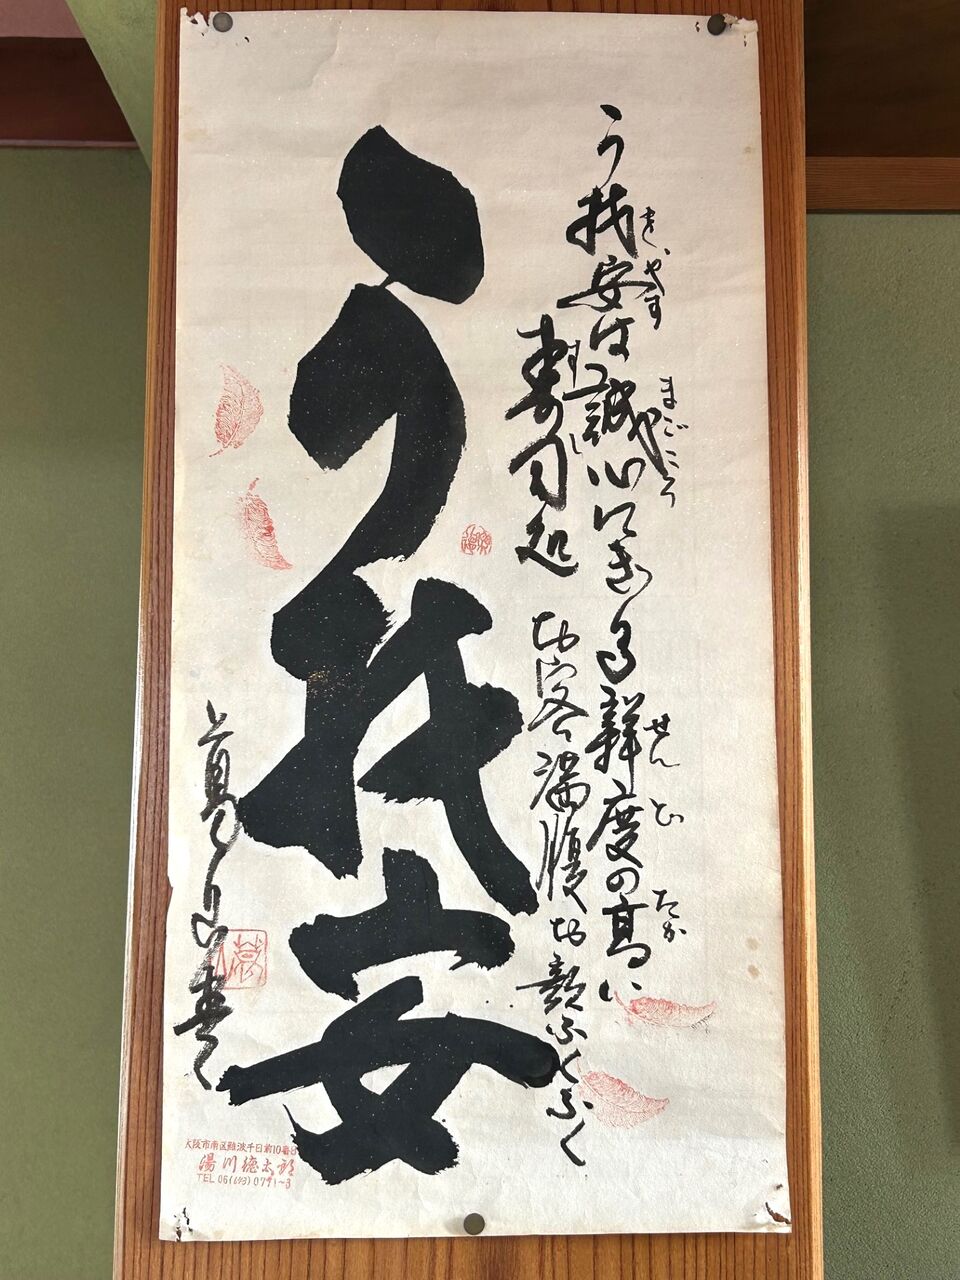 う安は誠心にぎる鮮度の高い
きやす
まごころ
せんど
たか
寿司処 お客満腹お顔ふくふく
すし
う安
書
大阪市南区難波千日前10番8
湯川徳太郎
TEL 06(643)0791~3